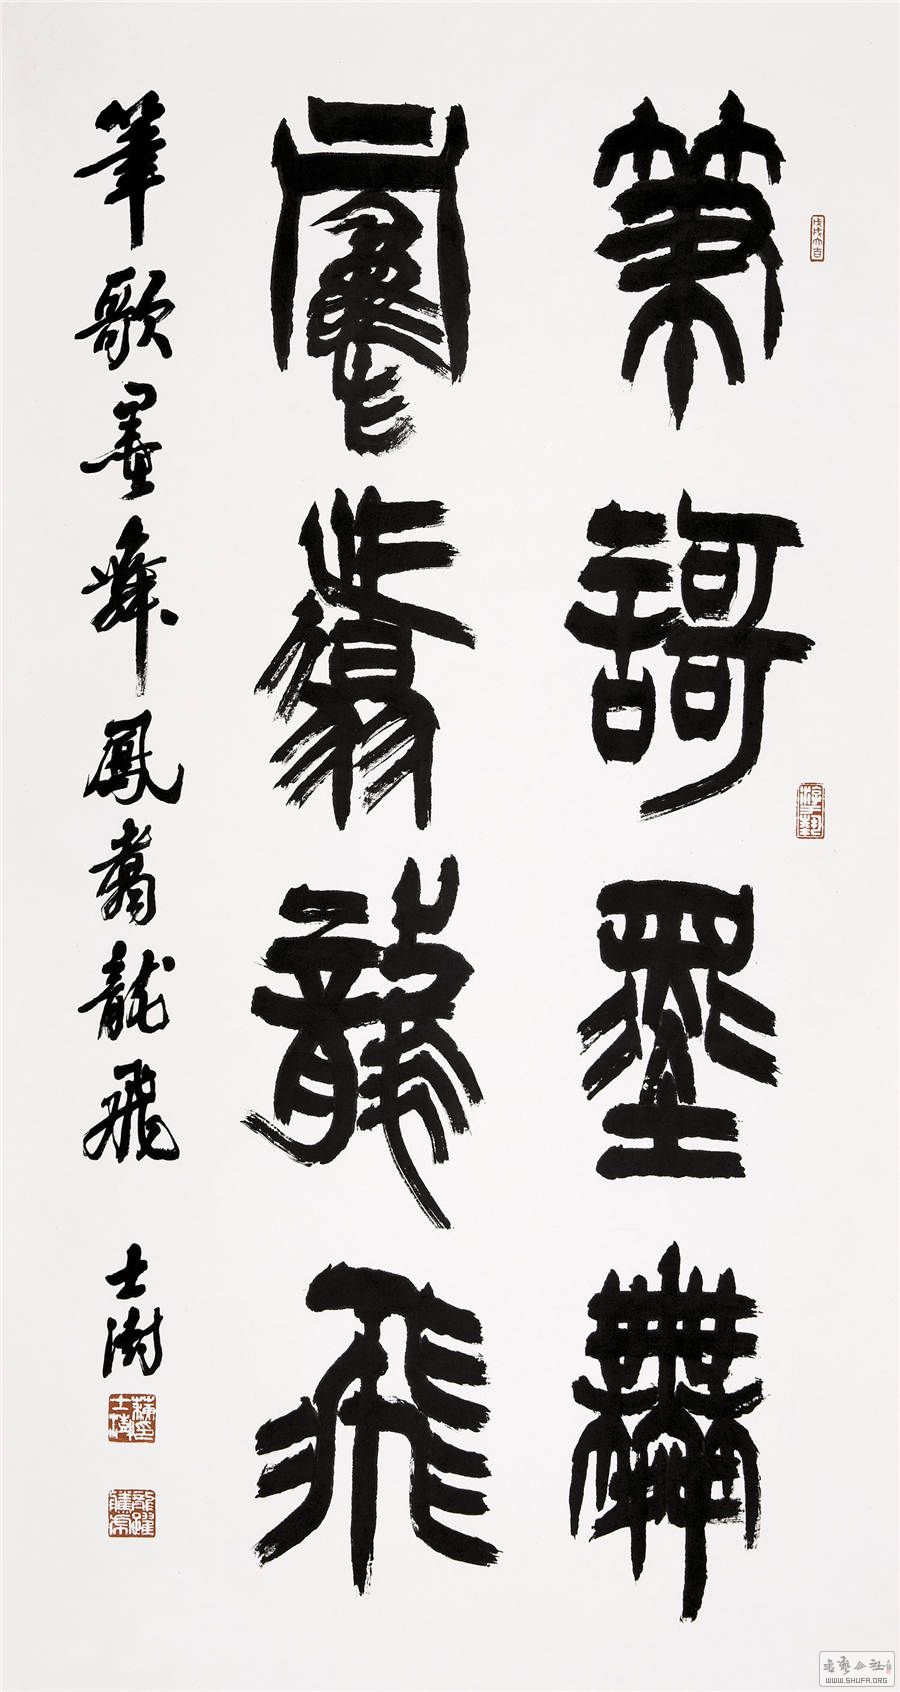 筆謌墨舞
鳳翥龍飛
筆歌墨舞鳳翥龍飛 士澍
戊戌大吉
龍躍
書藝公社
WWW.SHUFA.ORG